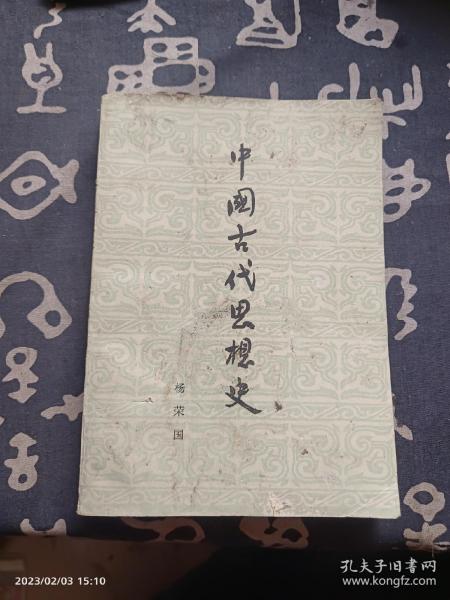 中國古代思想史
杨荣国
2023/02/03 15:10
孔夫子旧书网
www.kongfz.com